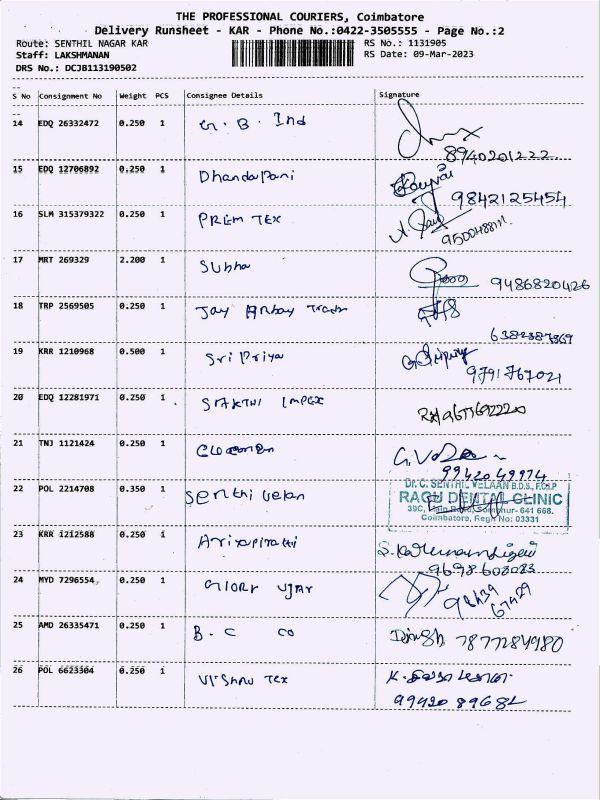 THE PROFESSIONAL COURIERS, Coimbatore
Delivery Runsheet - KAR - Phone No.:0422-3505555 - Page No.:2
Route: SENTHIL NAGAR KAR RS No.: 1131905
Staff: LAKSHMANAN RS Date: 09-Mar-2023
DRS No.: DCJB113190502
S No Consignment No Weight PCS Consignee Details Signature
14 EDQ 26332472 0.250 1 G. B. Ind
8940201222
15 EDQ 12706892 0.250 1 Dhandapani
9842125454
16 SLM 315379322 0.250 1 PREM TEX
17 MRT 269329 2.200 1 Subha
9486820426
18 TRP 2569505 0.250 1 Jay
6382387369
19 KRR 1210968 0.500 1 Sri Priya
9791767021
20 EDQ 12281971 0.250 1 SAKTHI IMPEX
21 TNJ 1121424 0.250 1
9942049974
22 POL 2214708 0.350 1 Senthil velan
Dr. C. SENTHIL VELAAN B.D.S., F.C.I.P
RAGU DENTAL CLINIC
39C, 641 668.
Coimbatore, Regn No: 03331
23 KRR 1212588 0.250 1
9698603083
24 MYD 7296554 0.250 1 GIORY VJAY
25 AMD 26335471 0.250 1 B. C CO
7877284980
26 POL 6623304 0.250 1 Vishnu Tex
K.
9942089682